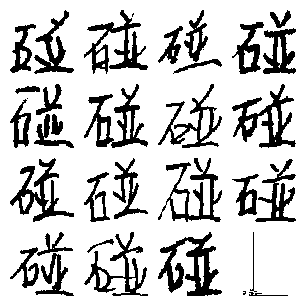 碰碰碰碰
碰碰碰碰
碰碰碰碰
碰碰碰